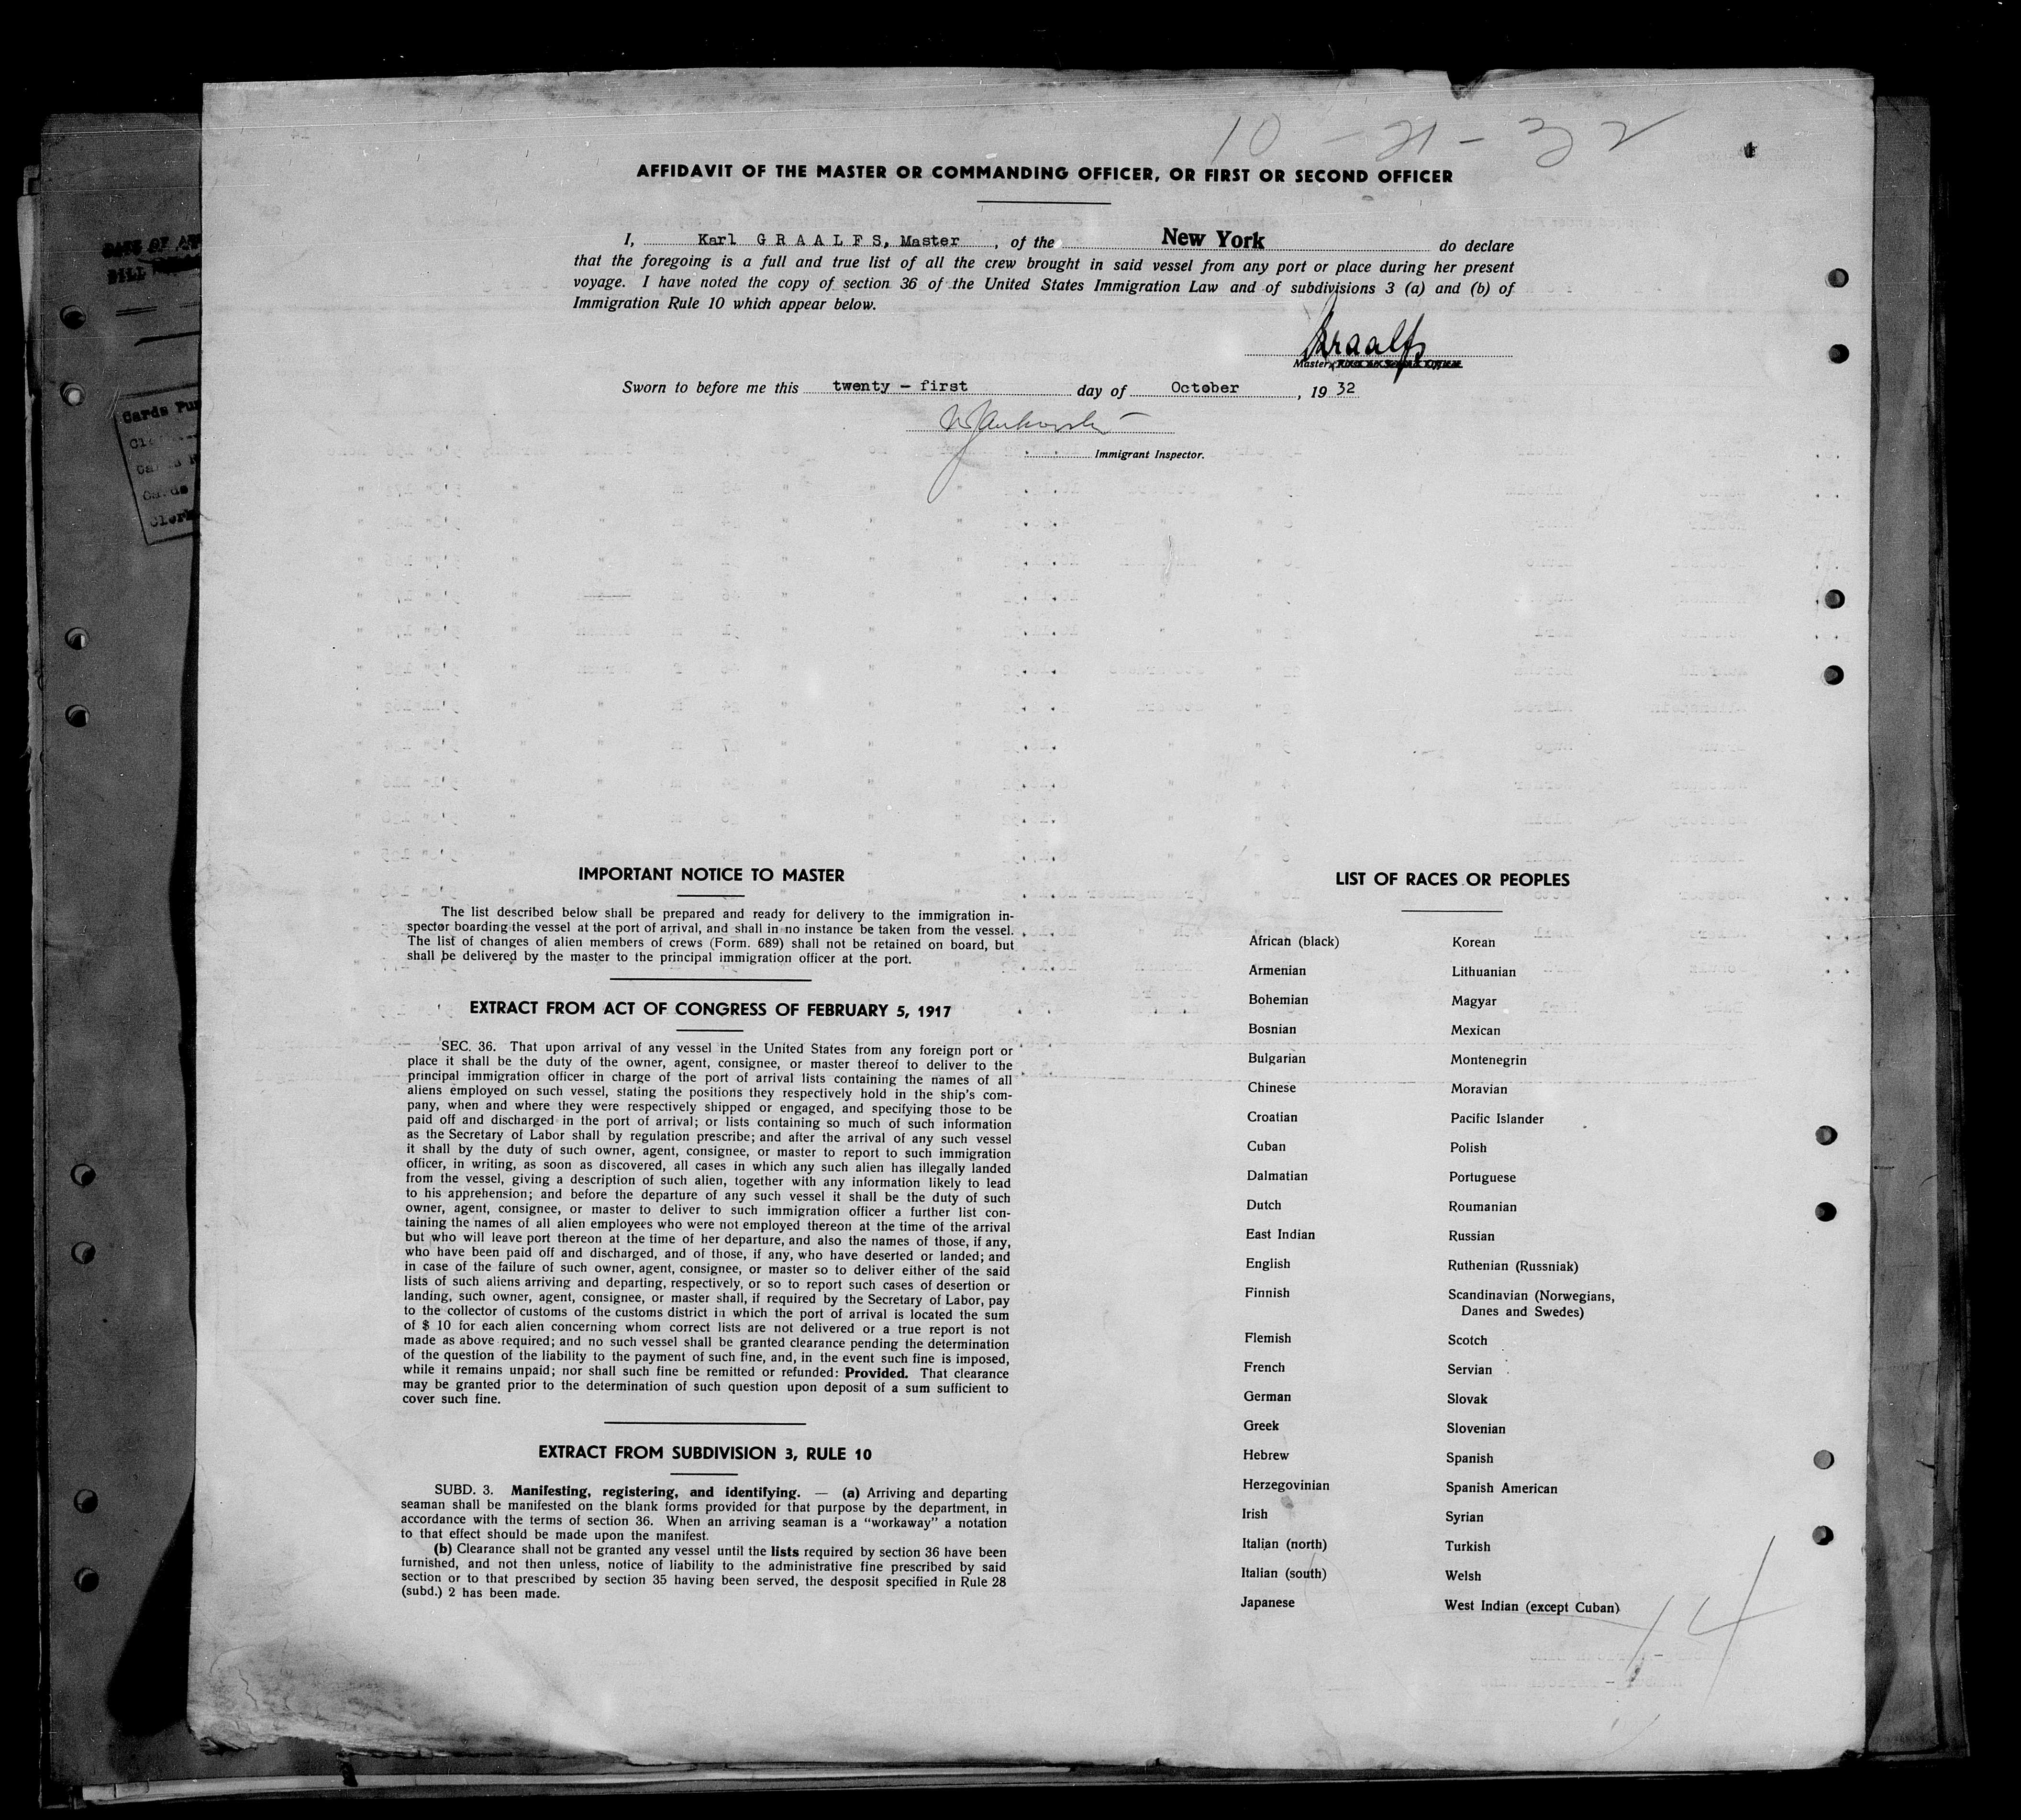 10 - 21 - 32
AFFIDAVIT OF THE MASTER OR COMMANDING OFFICER, OR FIRST OR SECOND OFFICER
I, Karl G R A A L F S, Master, of the New York do declare
that the foregoing is a full and true list of all the crew brought in said vessel from any port or place during her present
voyage. I have noted the copy of section 36 of the United States Immigration Law and of subdivisions 3 (a) and (b) of
Immigration Rule 10 which appear below.
Graalfs
Master, First or Second Officer.
Sworn to before me this twenty - first day of October, 19 32
Immigrant Inspector.
IMPORTANT NOTICE TO MASTER
The list described below shall be prepared and ready for delivery to the immigration in-
spector boarding the vessel at the port of arrival, and shall in no instance be taken from the vessel.
The list of changes of alien members of crews (Form. 689) shall not be retained on board, but
shall be delivered by the master to the principal immigration officer at the port.
EXTRACT FROM ACT OF CONGRESS OF FEBRUARY 5, 1917
SEC. 36. That upon arrival of any vessel in the United States from any foreign port or
place it shall be the duty of the owner, agent, consignee, or master thereof to deliver to the
principal immigration officer in charge of the port of arrival lists containing the names of all
aliens employed on such vessel, stating the positions they respectively hold in the ship's com-
pany, when and where they were respectively shipped or engaged, and specifying those to be
paid off and discharged in the port of arrival; or lists containing so much of such information
as the Secretary of Labor shall by regulation prescribe; and after the arrival of any such vessel
it shall by the duty of such owner, agent, consignee, or master to report to such immigration
officer, in writing, as soon as discovered, all cases in which any such alien has illegally landed
from the vessel, giving a description of such alien, together with any information likely to lead
to his apprehension; and before the departure of any such vessel it shall be the duty of such
owner, agent, consignee, or master to deliver to such immigration officer a further list con-
taining the names of all alien employees who were not employed thereon at the time of the arrival
but who will leave port thereon at the time of her departure, and also the names of those, if any,
who have been paid off and discharged, and of those, if any, who have deserted or landed; and
in case of the failure of such owner, agent, consignee, or master so to deliver either of the said
lists of such aliens arriving and departing, respectively, or so to report such cases of desertion or
landing, such owner, agent, consignee, or master shall, if required by the Secretary of Labor, pay
to the collector of customs of the customs district in which the port of arrival is located the sum
of $ 10 for each alien concerning whom correct lists are not delivered or a true report is not
made as above required; and no such vessel shall be granted clearance pending the determination
of the question of the liability to the payment of such fine, and, in the event such fine is imposed,
while it remains unpaid; nor shall such fine be remitted or refunded: Provided. That clearance
may be granted prior to the determination of such question upon deposit of a sum sufficient to
cover such fine.
EXTRACT FROM SUBDIVISION 3, RULE 10
SUBD. 3. Manifesting, registering, and identifying. — (a) Arriving and departing
seaman shall be manifested on the blank forms provided for that purpose by the department, in
accordance with the terms of section 36. When an arriving seaman is a “workaway” a notation
to that effect should be made upon the manifest.
(b) Clearance shall not be granted any vessel until the lists required by section 36 have been
furnished, and not then unless, notice of liability to the administrative fine prescribed by said
section or to that prescribed by section 35 having been served, the desposit specified in Rule 28
(subd.) 2 has been made.
LIST OF RACES OR PEOPLES
African (black)
Armenian
Bohemian
Bosnian
Bulgarian
Chinese
Croatian
Cuban
Dalmatian
Dutch
East Indian
English
Finnish
Flemish
French
German
Greek
Hebrew
Herzegovinian
Irish
Italian (north)
Italian (south)
Japanese
Korean
Lithuanian
Magyar
Mexican
Montenegrin
Moravian
Pacific Islander
Polish
Portuguese
Roumanian
Russian
Ruthenian (Russniak)
Scandinavian (Norwegians,
Danes and Swedes)
Scotch
Servian
Slovak
Slovenian
Spanish
Spanish American
Syrian
Turkish
Welsh
West Indian (except Cuban)
14